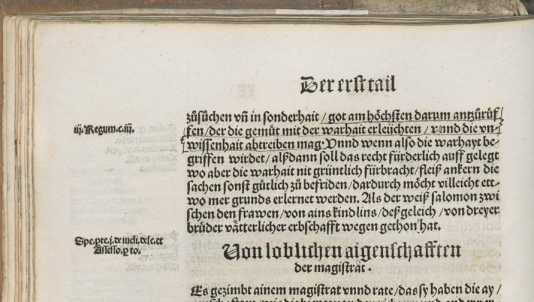 Der erst tail
zůsůchen vñ in sonderhait / got am höchsten darum antzůrůf
iij. Regum.c.iij.
fen / der die gemüt mit der warhait erleüchten / vnnd die vn-
wissenhait abtreiben mag. Vnnd wenn also die warhayt be-
griffen wirdet / alßdann soll das recht fürderlich auff gelegt
wo aber die warhait nit grüntlich fürbracht / fleiß ankern die
sachen sonst gůtlich zů befriden / dardurch möcht villeicht ett-
wo mer grunds erlernet werden. Als der weiß salomon zwi
schen den frawen / von ains kindlins / deßgeleich / von dreyer
Spe. pte.j. de iudi. de. c. et
Assesso. ꝙ to.
brüder vätterlicher erbschafft wegen gethon hat.
Von loblichen aigenschafften
der magistrat.
Es gezimbt ainem magistrat vnnd rate / das sy haben die ay /